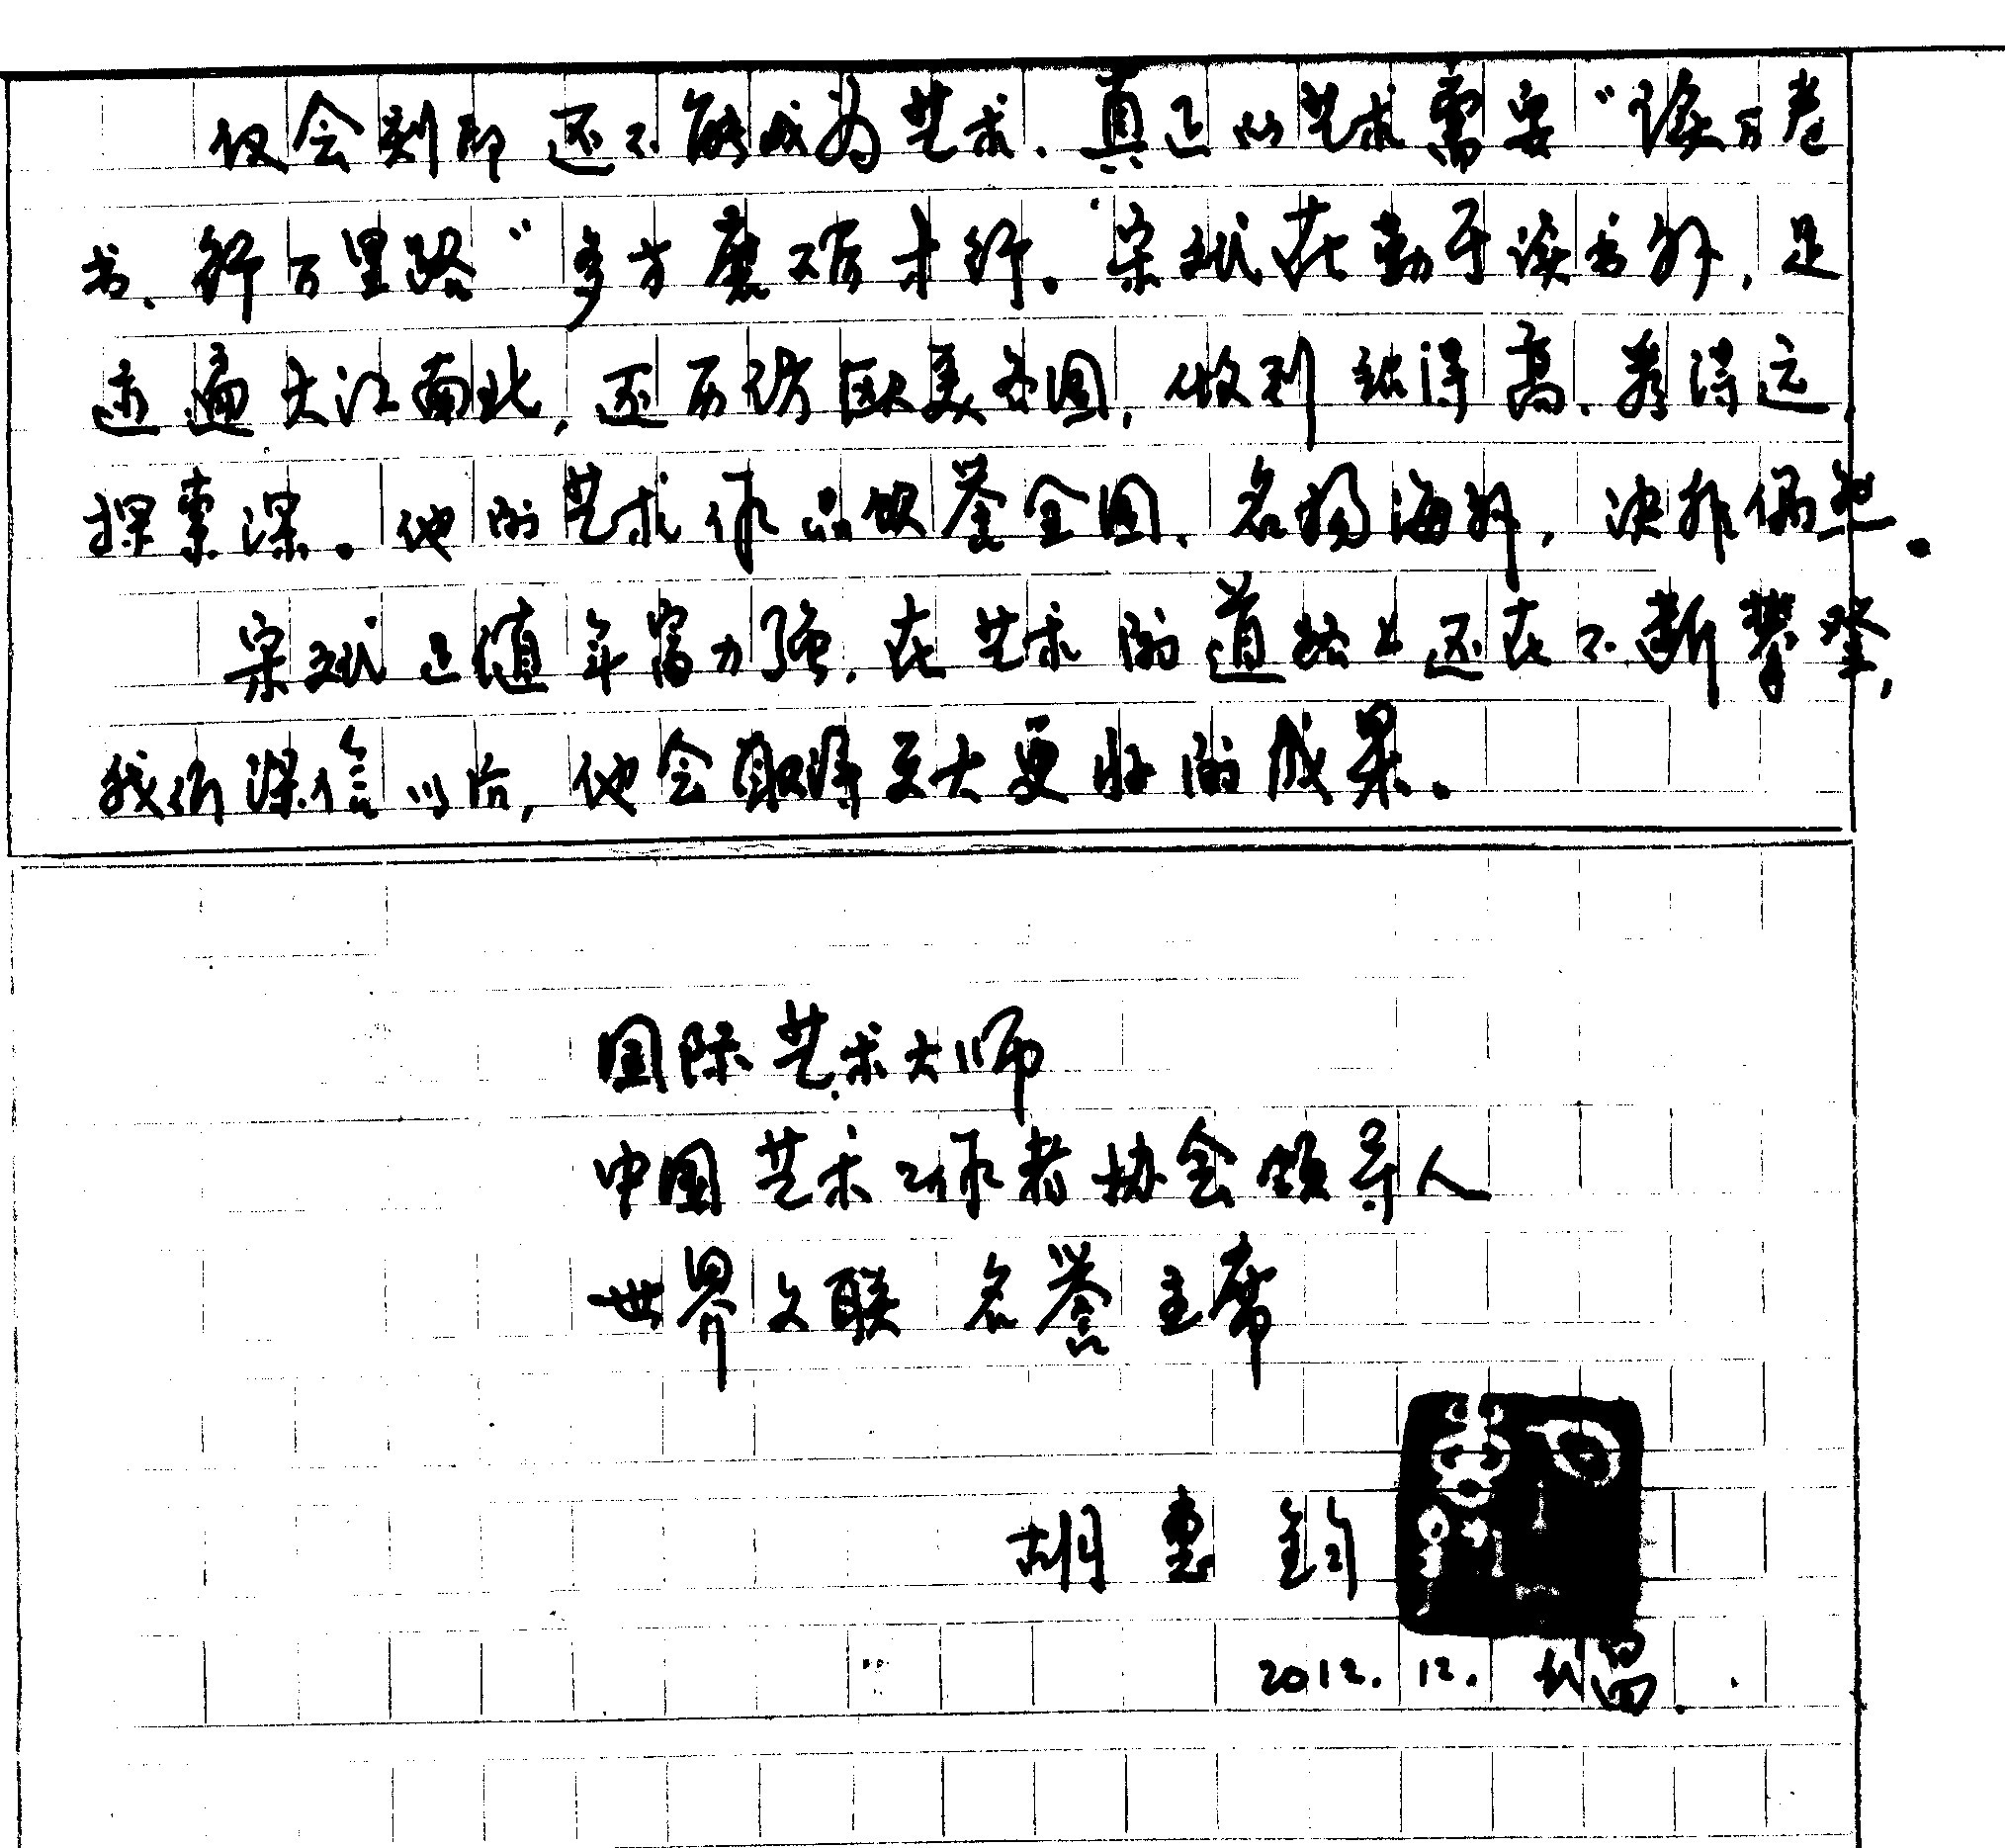 仅会刻印还不能成为艺术.真正的艺术需要“读万卷
书、行万里路”多方磨砺才行。宋斌在勤于读书外,足
迹遍大江南北,还历访欧美各国,做到站得高、看得远、
探索深。他的艺术作品饮誉全国、名扬海外,决非偶然。
宋斌正值年富力强.在艺术的道路上还在不断攀登,
我们深信以后,他会取得更大更好的成果。
国际艺术大师
中国艺术工作者协会领导人
世界文联 名誉主席
胡惠钧
2012.12.